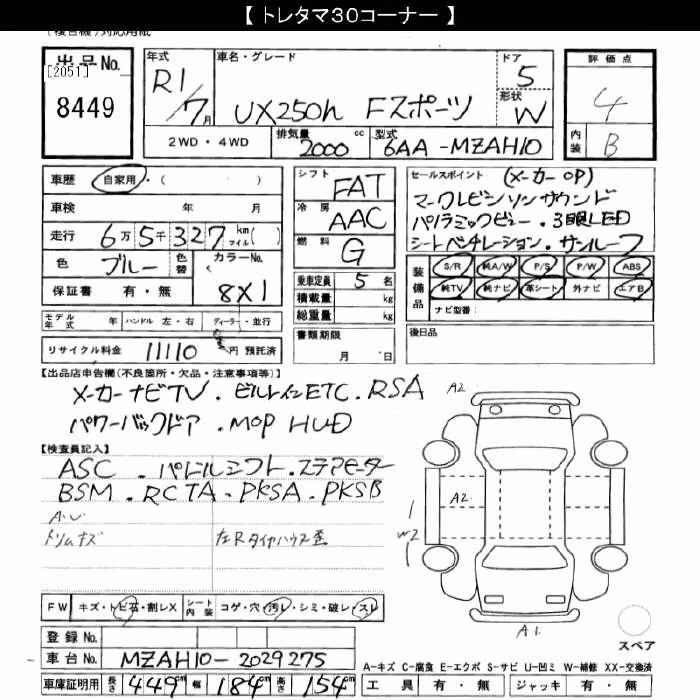 【 トレタマ30コーナー 】
(複合機)対応用紙
出品No.
[2051]
8449
年式 R1/7月
車名・グレード
UX250h Fスポーツ
ドア 5
形状 W
評価点
4
内装 B
2WD・4WD 排気量 2000 cc 型式 6AA-MZAH10
車歴 自家用・( )
車検 年 月
走行 6万5千327 km マイル( )
色 ブルー 色替 カラーNo. ( 8X1
保証書 有・無
シフト FAT
冷房 AAC
燃料 G
乗車定員 5名
積載量 kg
総重量 kg
書類期限
月 日
セールスポイント (メーカーOP)
マークレビンソンサウンド
パノラミックビュー.3眼LED
シートベンチレーション.サンルーフ
装備品 S/R 純A/W P/S P/W ABS
純TV 純ナビ 革シート 外ナビ エアB
ナビ型番:
モデル年式 年 ハンドル 左・右 ディーラー・並行
後日品
リサイクル料金 11110 円 預託済
【出品店申告欄(不良箇所・欠品・注意事項等)】
メーカーナビTV.ビルトインETC.RSA
パワーバックドア.MOP HUD
【検査員記入】
ASC.パドルシフト.ステアヒーター
BSM.RCTA.PKSA.PKSB
A.U
トリムキズ
左Rタイヤハウス歪
A2
A2
W2
A1.
スペア
FW キズ・トビ石・割レX シート内装 コゲ・穴・汚レ・シミ・破レ・スレ
登録No.
車台No. MZAH10-2029275
車庫証明用 長さ 449cm 幅 184cm 高さ 154cm
A-キズ C-腐食 E-エクボ S-サビ U-凹ミ W-補修 XX-交換済
工具 有・無 ジャッキ 有・無